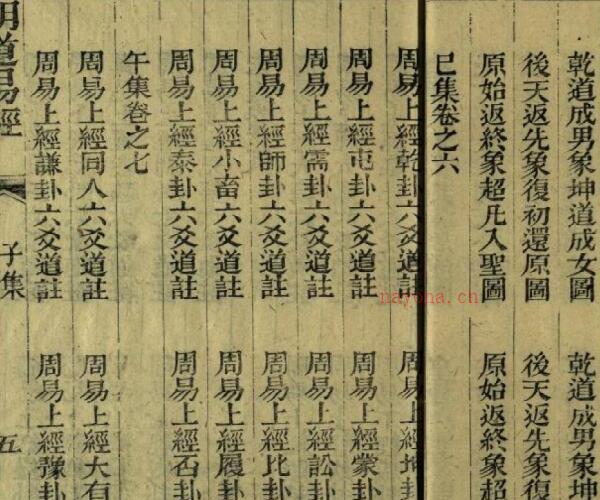 乾道成男象坤道成女圖 乾道成男象坤
後天返先象復初還原圖 後天返先象復
原始返終象超凡入聖圖 原始返終象超
巳集卷之六
周易上經乾卦六爻道註 周易上經坤卦
周易上經屯卦六爻道註 周易上經蒙卦
周易上經需卦六爻道註 周易上經訟卦
周易上經師卦六爻道註 周易上經比卦
周易上經小畜六爻道註 周易上經履卦
周易上經泰卦六爻道註 周易上經否卦
午集卷之七
周易上經同人六爻道註 周易上經大有
周易上經謙卦六爻道註 周易上經豫卦
明道易經 子集 五
nayona.cn